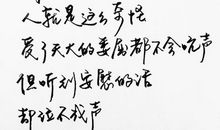 人就是这么奇怪
受了天大的委屈都不会吭声
但听到安慰的话
却泣不成声